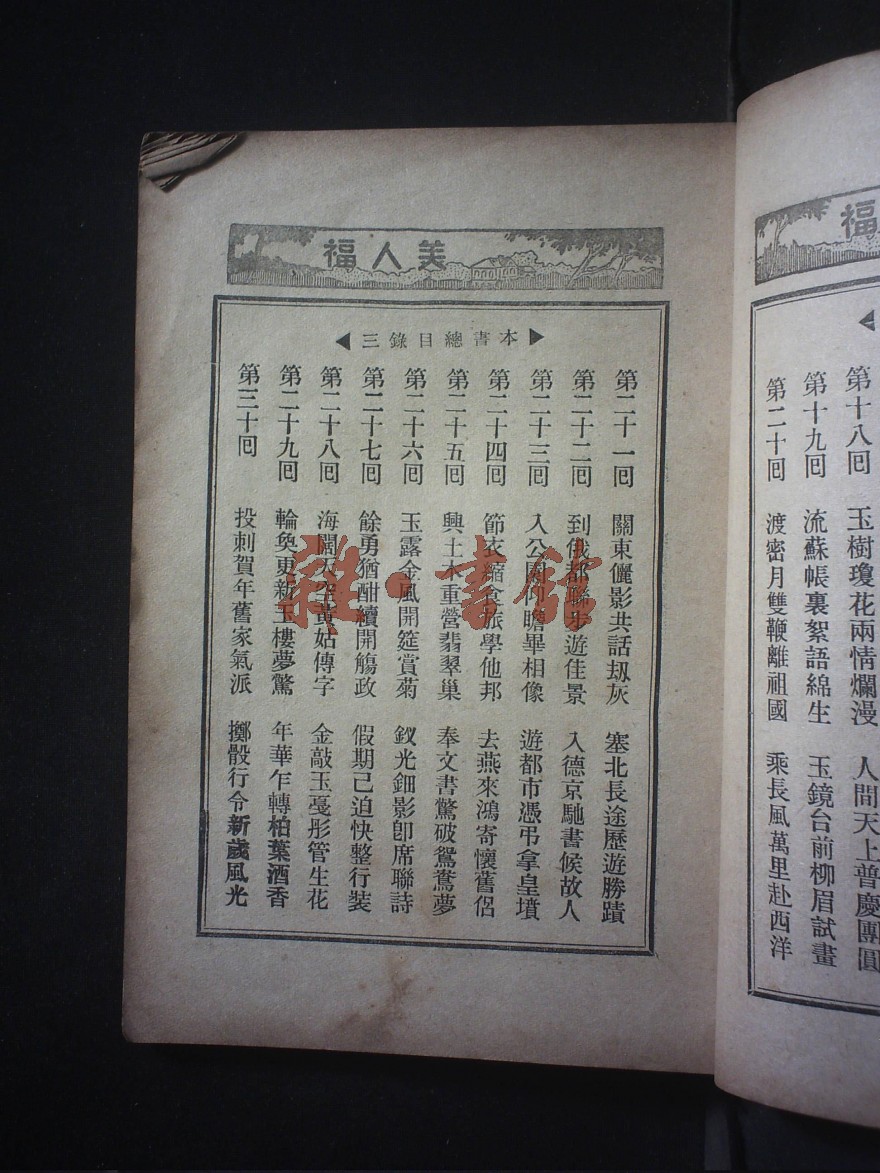 福
第十八回 玉樹瓊花兩情爛漫 人間天上普慶團圓
第十九回 流蘇帳裏絮語綿生 玉鏡台前柳眉試畫
第二十回 渡密月雙鞭離祖國 乘長風萬里赴西洋
美人福
本書總目錄三
第二十一回 關東儷影共話刼灰 塞北長途歷遊勝蹟
第二十二回 到俄都聯步遊佳景 入德京馳書候故人
第二十三回 入公園仰瞻畢相像 遊都市憑弔拿皇墳
第二十四回 節衣縮食旅學他邦 去燕來鴻寄懷舊侶
第二十五回 興土木重營翡翠巢 奉文書驚破鴛鴦夢
第二十六回 玉露金風開筵賞菊 釵光鈿影卽席聯詩
第二十七回 餘勇猶酣續開觴政 假期已迫快整行裝
第二十八回 海闊天空黃姑傳字 金敲玉戞彤管生花
第二十九回 輪奐更新玉樓夢驚 年華乍轉柏葉酒香
第三十回 投刺賀年舊家氣派 擲骰行令新歲風光
雜·書館